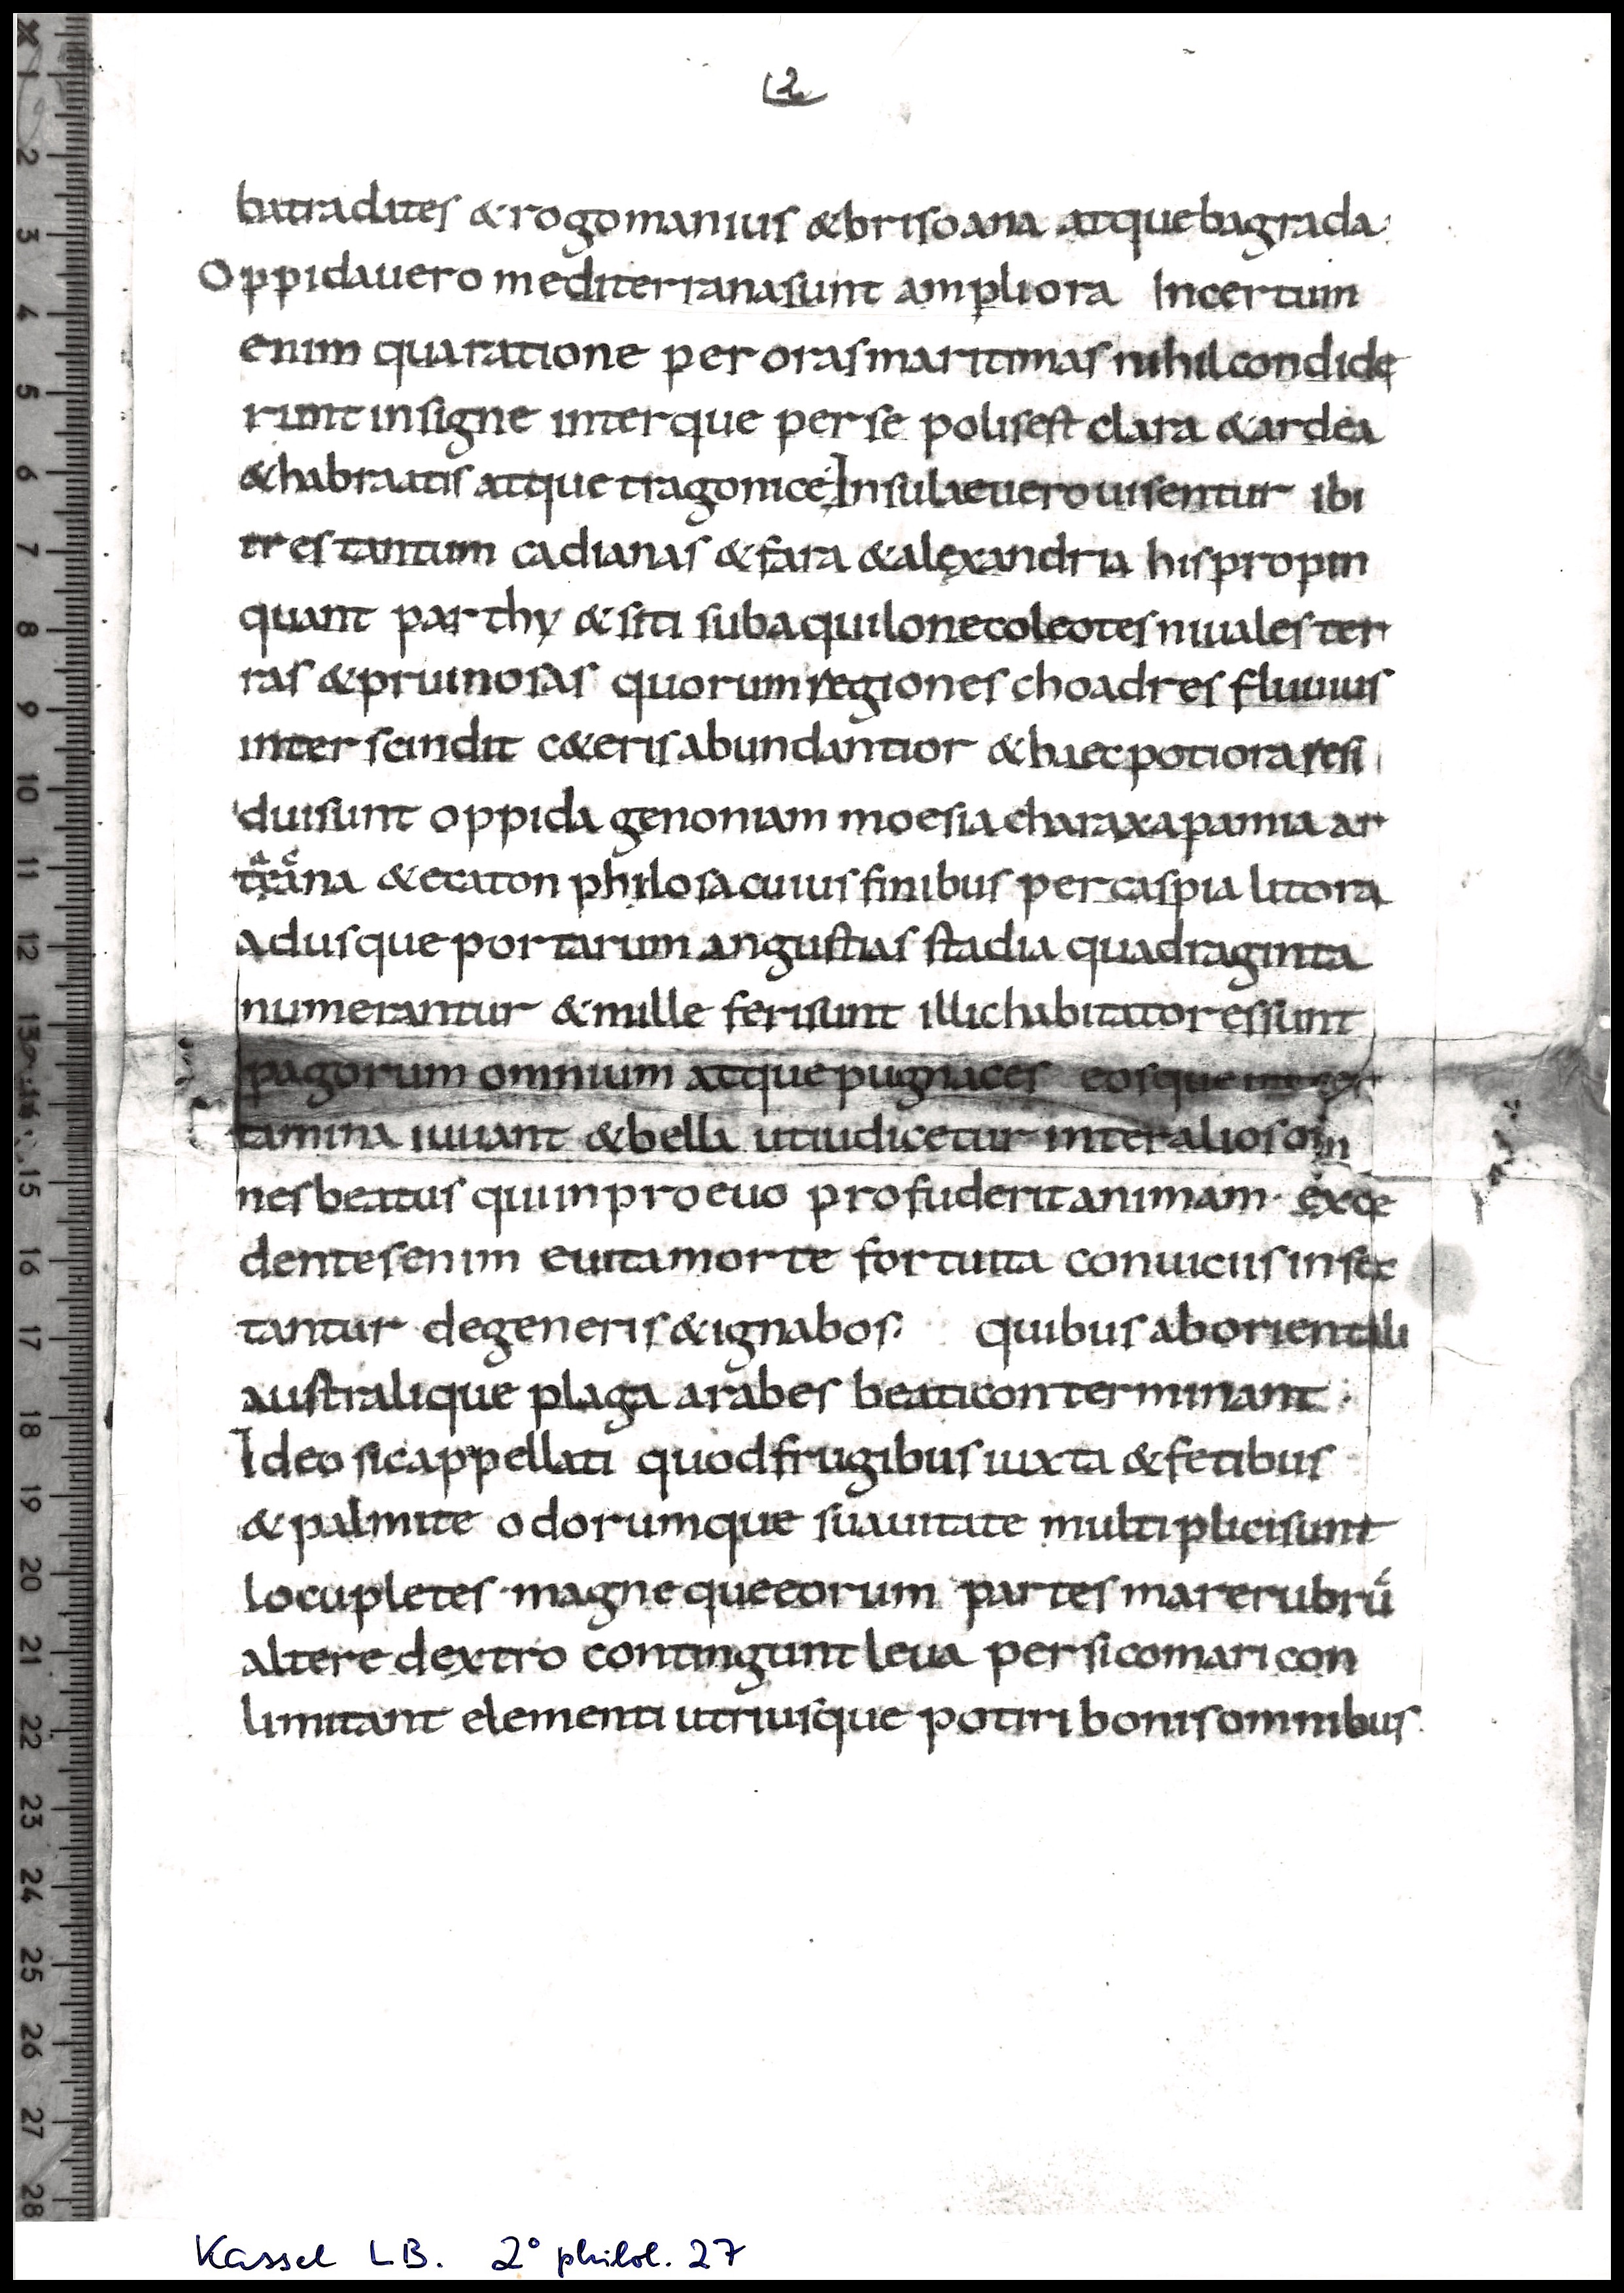 12
batradites & rogomanius & brisoana atque bagrada.
Oppida uero mediterranasunt ampliora Incertum
enim qua ratione per oras maritimas nihil condide
runt insigne interque perse polis est clara & ardea
& habraatis atque tragonice Insulae uero uisentur ibi
tres tantum cadianas & fara & alexandria his propin
quant parthy & siti sub aquilone coleotes niuales ter
ras & pruinosas quorum regiones choadres fluuius
inter scindit c&eris abundantior & haec potiora resi
dui sunt oppida genoniam moesia charax apamia ar
& ecaton philosa cuius finibus per caspia litora
adusque portarum angustias stadia quadraginta
numerantur & mille feri sunt illic habitatores sunt
pagorum omnium atque pugnaces eosque
tamina iuuant & bella ut iudicetur inter alios om
nes beatus qui in proeuo profuderit animam. exce
dentes enim e uita morte fortuita conuiciis insec
tantur degeneris & ignabos. quibus ab orientali
australique plaga arabes beati conterminant.
Ideo sic appellati quod frugibus iuxta & fetibus
& palmite odorumque suauitate multiplici sunt
locupletes. magneque eorum partes mare rubrū
altere dextro contingunt leua persico mari con
limitant elementi utriusque potiri bonis omnibus
Kassel LB. 2° philol. 27
x 1 2 3 4 5 6 7 8 9 10 11 12 13 14 15 16 17 18 19 20 21 22 23 24 25 26 27 28